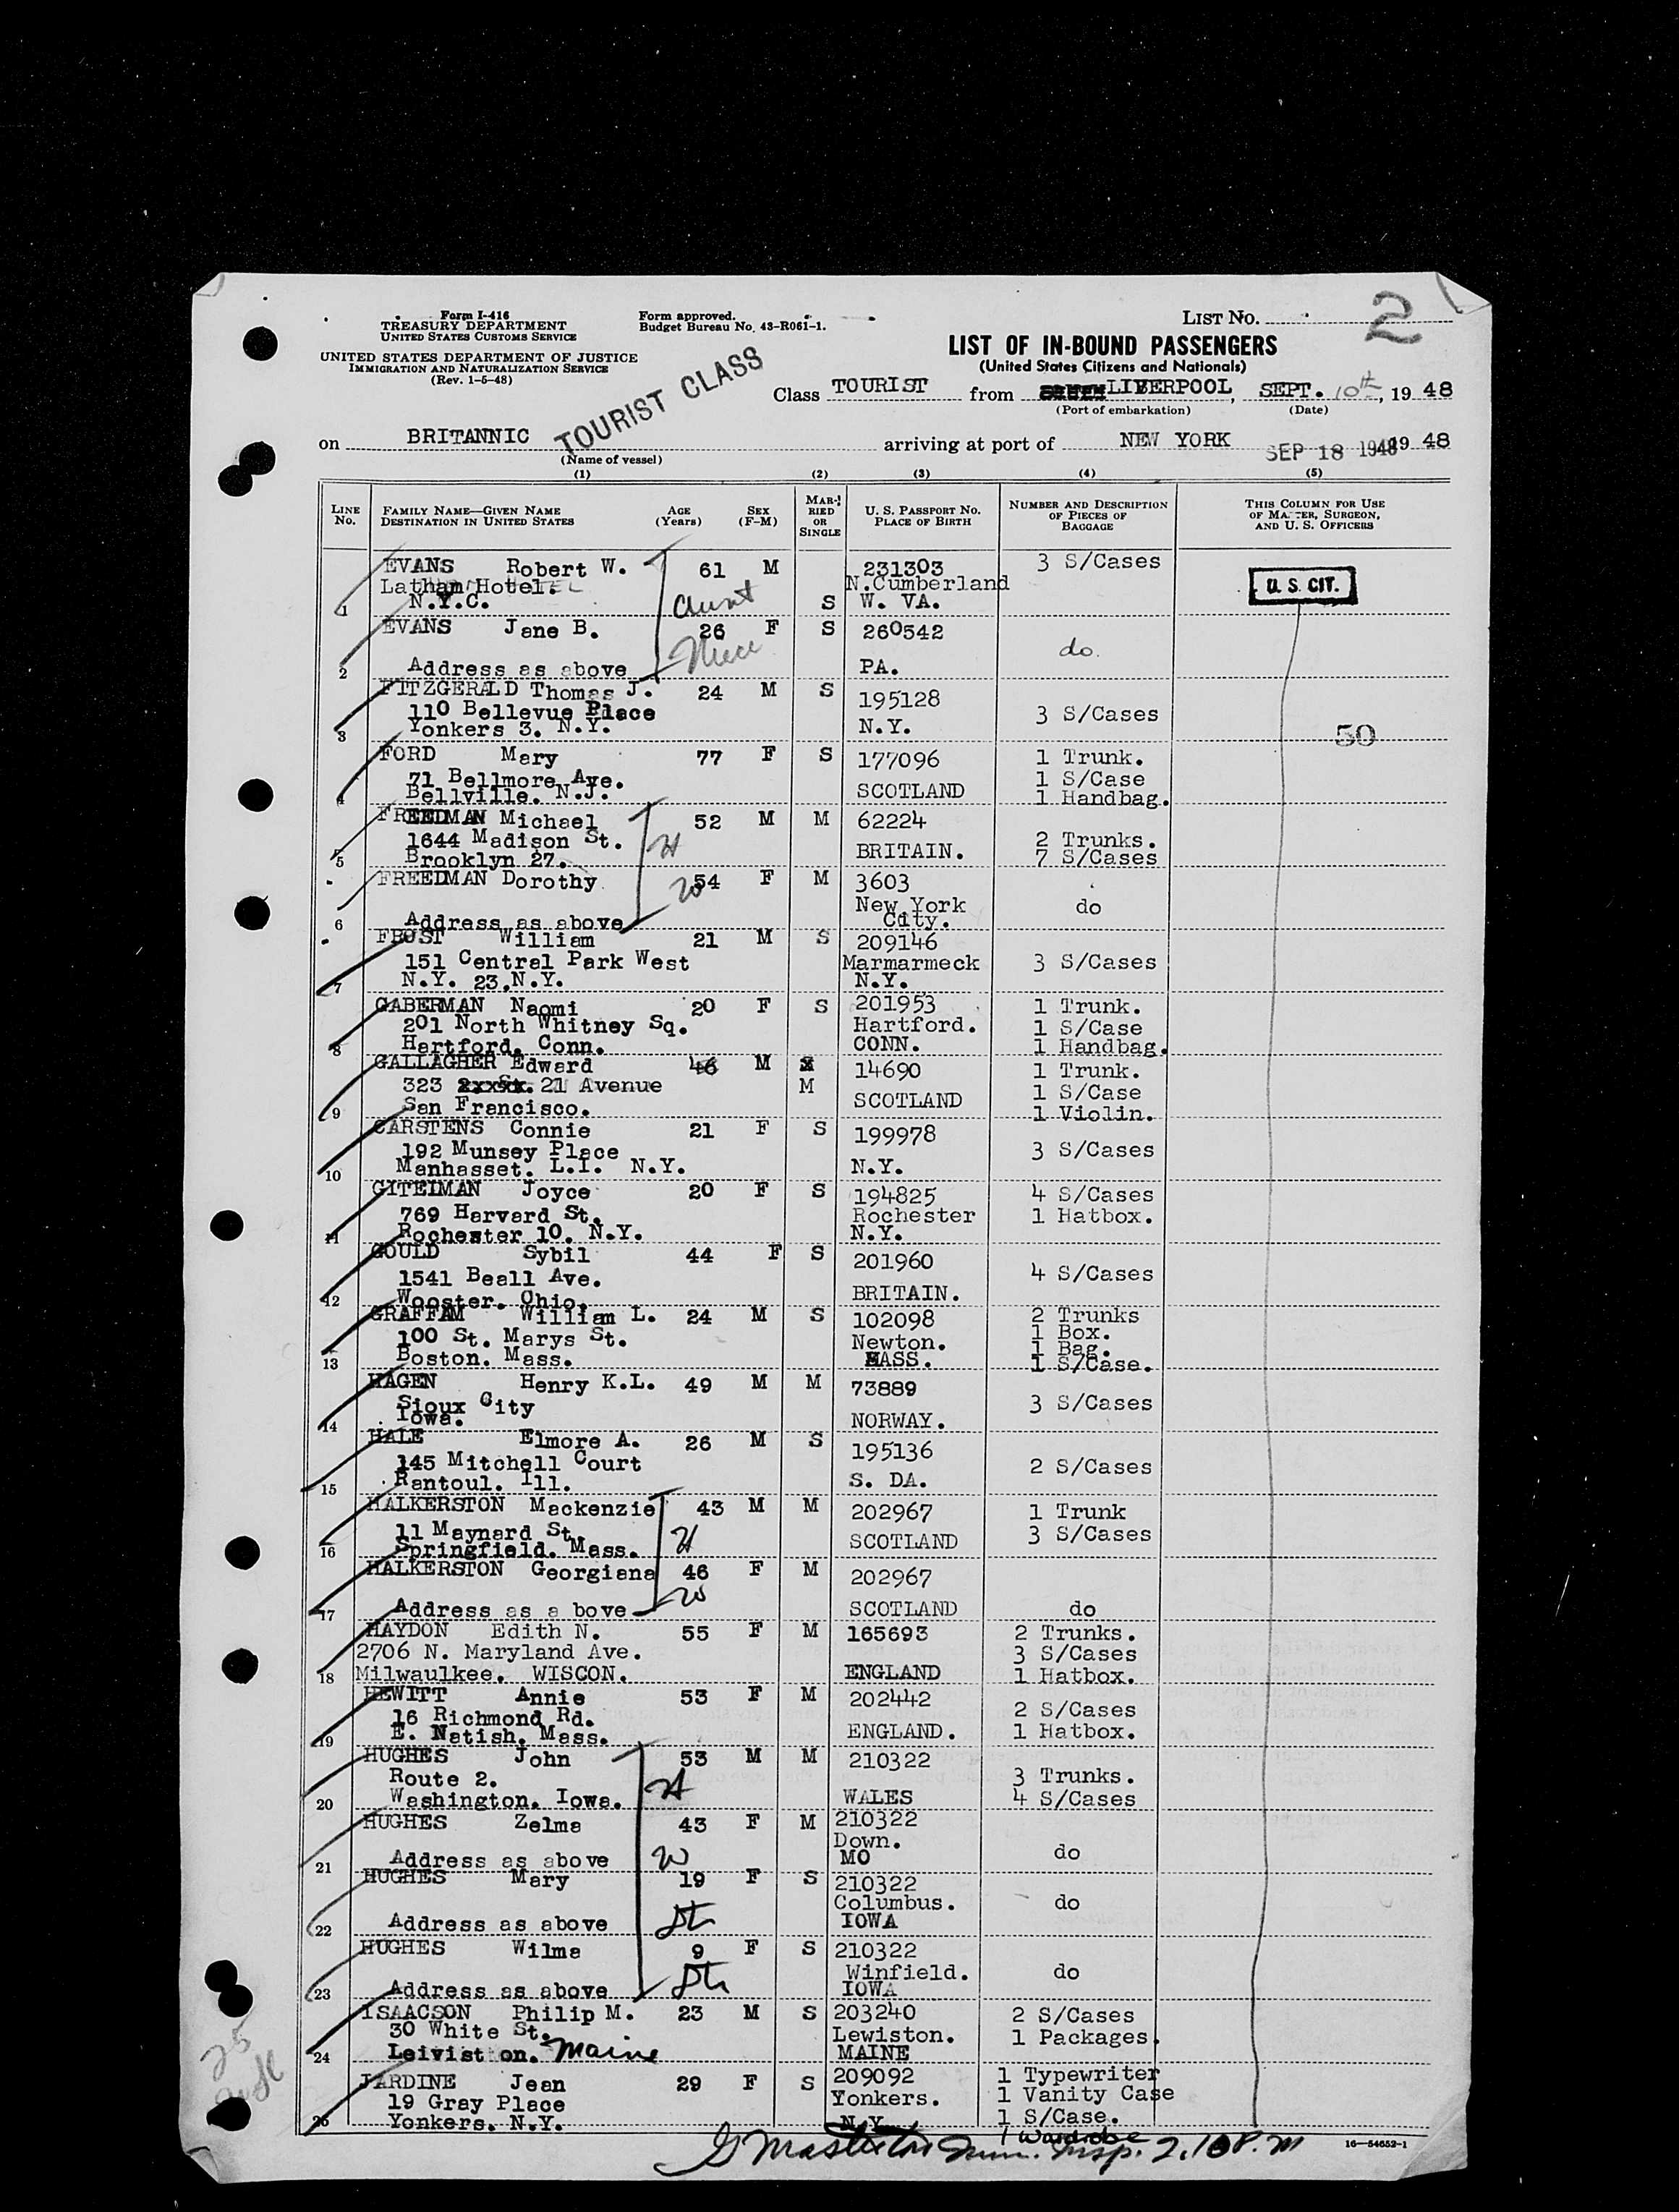 Form I-416
TREASURY DEPARTMENT
UNITED STATES CUSTOMS SERVICE
UNITED STATES DEPARTMENT OF JUSTICE
IMMIGRATION AND NATURALIZATION SERVICE
(Rev. 1-5-48)
Form approved.
Budget Bureau No. 43-R061-1.
LIST NO. 2
LIST OF IN-BOUND PASSENGERS
(United States Citizens and Nationals)
TOURIST CLASS
Class TOURIST from LIVERPOOL, SEPT. 10th, 19 48
(Port of embarkation) (Date)
on BRITANNIC arriving at port of NEW YORK SEP 18 1948 19 48
(Name of vessel)
(1) (2) (3) (4) (5)
LINE No. FAMILY NAME—GIVEN NAME DESTINATION IN UNITED STATES AGE (Years) SEX (F-M) MARRIED OR SINGLE U. S. PASSPORT No. PLACE OF BIRTH NUMBER AND DESCRIPTION OF PIECES OF BAGGAGE THIS COLUMN FOR USE OF MASTER, SURGEON, AND U. S. OFFICERS
EVANS Robert W. 61 M 231303 3 S/Cases
Latham Hotel. N.Cumberland U. S. CIT.
1 N.Y.C. Aunt S W. VA.
EVANS Jane B. 26 F S 260542
Niece do.
2 Address as above PA.
FITZGERALD Thomas J. 24 M S 195128
110 Bellevue Place 3 S/Cases
3 Yonkers 3. N.Y. N.Y. 50
FORD Mary 77 F S 177096 1 Trunk.
71 Bellmore Ave. 1 S/Case
4 Bellville. N.J. SCOTLAND 1 Handbag.
FREEDMAN Michael 52 M M 62224
1644 Madison St. H 2 Trunks.
5 Brooklyn 27. BRITAIN. 7 S/Cases
FREEDMAN Dorothy W 54 F M 3603
New York do
6 Address as above City.
FROST William 21 M S 209146
151 Central Park West Marmarmeck 3 S/Cases
7 N.Y. 23.N.Y. N.Y.
GABERMAN Naomi 20 F S 201953 1 Trunk.
201 North Whitney Sq. Hartford. 1 S/Case
8 Hartford. Conn. CONN. 1 Handbag.
GALLAGHER Edward 46 M 14690 1 Trunk.
323 21 Avenue M 1 S/Case
9 San Francisco. SCOTLAND 1 Violin.
CARSTENS Connie 21 F S 199978
192 Munsey Place 3 S/Cases
10 Manhasset. L.I. N.Y. N.Y.
GITEIMAN Joyce 20 F S 194825 4 S/Cases
769 Harvard St. Rochester 1 Hatbox.
11 Rochester 10. N.Y. N.Y.
GOULD Sybil 44 F S 201960
1541 Beall Ave. 4 S/Cases
12 Wooster. Ohio. BRITAIN.
GRAFFAM William L. 24 M S 102098 2 Trunks
100 St. Marys St. Newton. 1 Box.
1 Bag.
13 Boston. Mass. MASS. 1 S/Case.
HAGEN Henry K.L. 49 M M 73889
Sioux City 3 S/Cases
14 Iowa. NORWAY.
HALE Elmore A. 26 M S 195136
145 Mitchell Court 2 S/Cases
15 Rantoul. Ill. S. DA.
HALKERSTON Mackenzie 43 M M 202967 1 Trunk
11 Maynard St. H 3 S/Cases
16 Springfield. Mass. SCOTLAND
HALKERSTON Georgiana 46 F M 202967
W
17 Address as a bove SCOTLAND do
HAYDON Edith N. 55 F M 165693 2 Trunks.
2706 N. Maryland Ave. 3 S/Cases
18 Milwaulkee. WISCON. ENGLAND 1 Hatbox.
HEWITT Annie 53 F M 202442
16 Richmond Rd. 2 S/Cases
19 E. Natish. Mass. ENGLAND. 1 Hatbox.
HUGHES John 53 M M 210322
Route 2. H 3 Trunks.
20 Washington. Iowa. WALES 4 S/Cases
HUGHES Zelma 43 F M 210322
Down.
21 Address as above W MO do
HUGHES Mary 19 F S 210322
Columbus. do
22 Address as above Dtr IOWA
HUGHES Wilma 9 F S 210322
Winfield. do
23 Address as above Dtr IOWA
ISAACSON Philip M. 23 M S 203240 2 S/Cases
30 White St. Lewiston. 1 Packages.
24 Leiviston. Maine MAINE
JARDINE Jean 29 F S 209092 1 Typewriter
19 Gray Place Yonkers. 1 Vanity Case
25 Yonkers. N.Y. N.Y. 1 S/Case.
1 Wardrobe
Imm. Insp. 2.10 P.M
16—54652-1
25